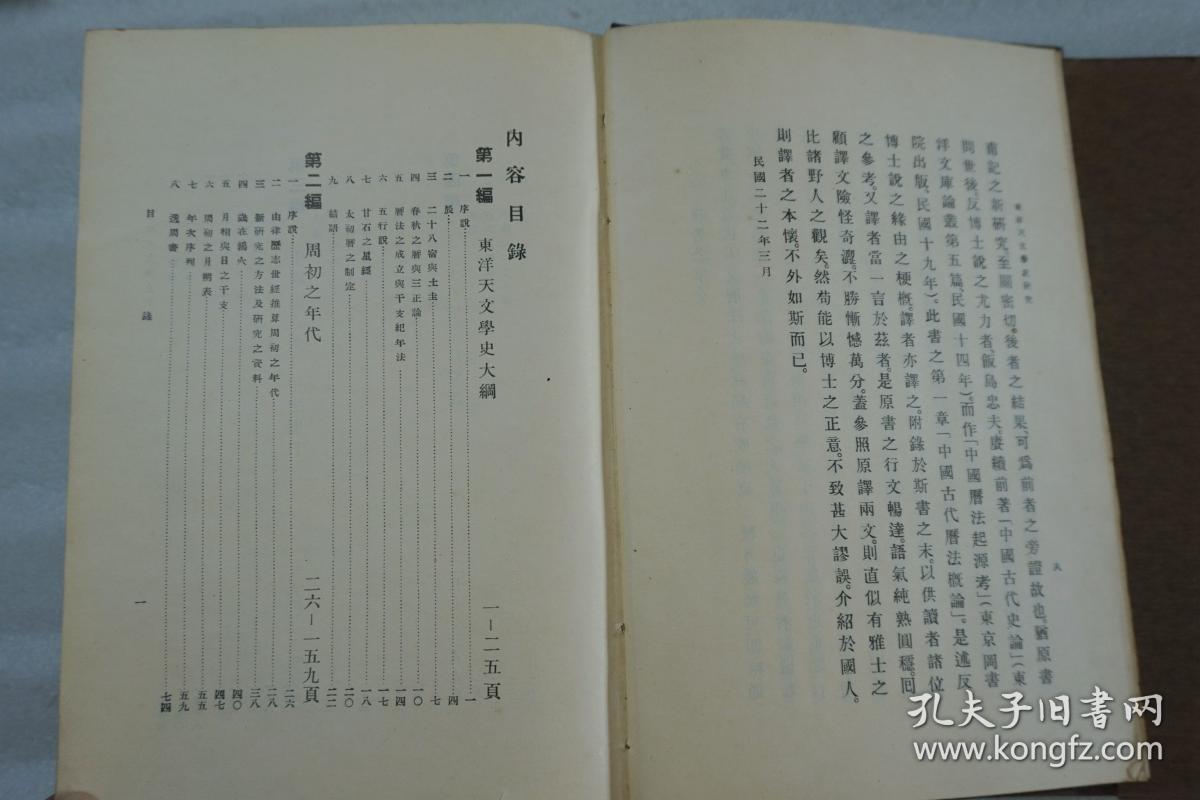 東洋天文學史研究
八
甫記之新研究至關密切。後者之結果、可爲前者之旁證故也。猶原書
問世後、反博士說之尤力者飯島忠夫、賡續前著「中國古代史論」(東
洋文庫論叢第五篇、民國十四年)。而作「中國曆法起源考」(東京岡書
院出版、民國十九年)。此書之第一章「中國古代曆法概論」。是述反
博士說之緣由之梗概。譯者亦譯之。附錄於斯書之末。以供讀者諸位
之參考。又譯者當一言於茲者。是原書之行文暢達。語氣純熟圓穩。囘
顧譯文險怪奇澀。不勝慚憾萬分。蓋參照原譯兩文。則直似有雅士之
比諸野人之觀矣。然苟能以博士之正意。不致甚大謬誤。介紹於國人。
則譯者之本懷。不外如斯而已。
民國二十二年三月
內容目錄
第一編 東洋天文學史大綱 一—二五頁
一 序說 一
二 辰 四
三 二十八宿與土圭 七
四 春秋之曆與三正論 一〇
五 曆法之成立與干支紀年法 一四
六 五行說 一七
七 甘石之星經 一八
八 太初曆之制定 二〇
九 結語 二二
第二編 周初之年代 二六—一五九頁
一 序說 二六
二 由律歷志世經推算周初之年代 二八
三 新研究之方法及研究之資料 三八
四 歲在鶉火 四〇
五 月相與日之干支 四七
六 周初之月朔表 五五
七 年次序列 五九
八 逸周書 七四
目錄
一
孔夫子旧书网
www.kongfz.com